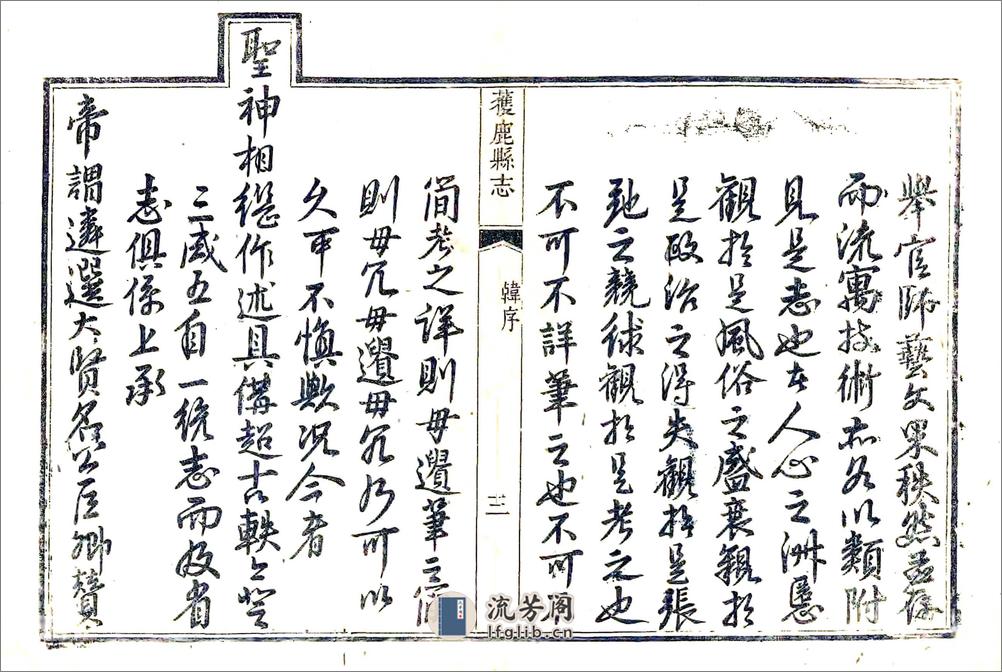 舉官師藝文果秩然並存
而流寓技術亦各以類附
見是志也在人心之淑慝
觀於是風俗之盛衰觀於
是政治之得失觀於是張
弛之競絿觀於是考之也
不可不詳筆之也不可
獲鹿縣志
韓序
三
簡考之詳則毋遺筆之簡
則毋冗毋遺毋冗乃可以
久可不慎歟况今者
聖神相繼作述具備超古軼今登
三咸五自一統志而及省
志俱係上承
帝謂遴選大賢名公臣卿贊
流芳阁
lfglib.cn